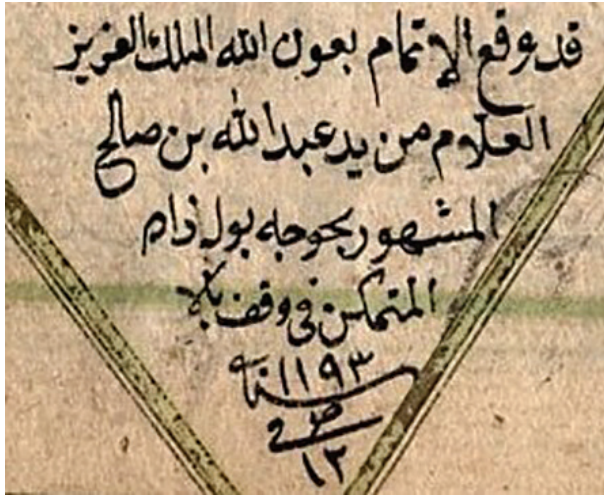 قد وقع الاتمام بعون الله الملك العزيز
العلام من يد عبد الله بن صالح
المشهور بحوجه بول زاده
المتمكن فى وقف بالا
سنة ١١٩٣
ص
١٢